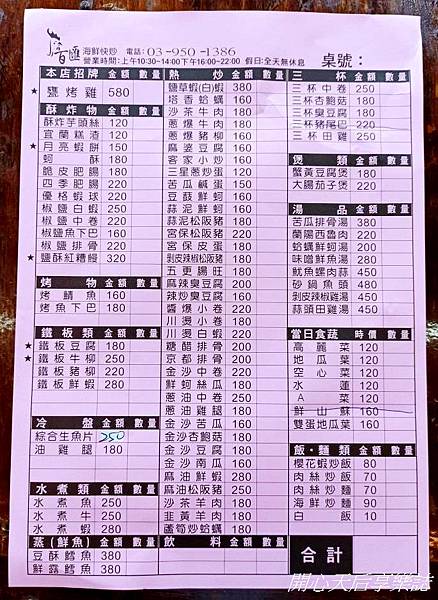 海鮮快炒 電話：03-950-1386
營業時間:上午10:30~14:00下午16:00~22:00 假日:全天無休息
桌號：
本店招牌 金額 數量
★ 鹽烤雞 580
酥炸物 金額 數量
酥炸芋頭絲 120
宜蘭糕渣 120
★ 月亮蝦餅 150
蚵酥 180
脆皮肥腸 180
四季肥腸 220
優格蝦球 220
椒鹽白蝦 250
椒鹽中卷 220
椒鹽魚下巴 160
椒鹽排骨 220
★ 鹽酥紅糟鰻 320
烤物 金額 數量
烤鯖魚 160
烤魚下巴 180
鐵板類 金額 數量
★ 鐵板豆腐 180
★ 鐵板牛柳 250
鐵板豬柳 220
鐵板鮮蝦 280
冷盤 金額 數量
綜合生魚片 250
油雞腿 180
水煮類 金額 數量
水煮魚 250
水煮牛 250
水煮蝦 280
蒸(鮮魚) 金額 數量
豆酥鱈魚 380
鮮露鱈魚 380
熱炒 金額 數量
鹽草蝦(白)蝦 380
塔香蛤蠣 160
沙茶牛肉 180
蔥爆牛肉 180
蔥爆豬柳 160
麻婆豆腐 160
客家小炒 160
三星蔥炒蛋 120
苦瓜鹹蛋 150
豆鼓鮮蚵 160
蒜泥鮮蚵 160
蒜泥松阪豬 220
宮保松阪豬 220
宮保皮蛋 180
剝皮辣椒松阪豬 220
五更腸旺 180
麻辣臭豆腐 200
辣炒臭豆腐 160
醬爆小卷 220
川燙小卷 180
川燙白蝦 220
糖醋排骨 200
京都排骨 200
金沙中卷 220
鮮蚵絲瓜 180
蔥油中卷 250
蔥油雞腿 180
金沙苦瓜 160
金沙杏鮑菇 180
金沙豆腐 180
金沙南瓜 160
麻油鮮蝦 280
麻油松阪豬 250
沙茶羊肉 180
韭黃羊肉 180
蘆筍炒蛤蠣 180
飲料 金額 數量
三杯 金額 數量
三杯中卷 250
三杯杏鮑菇 180
三杯臭豆腐 180
三杯豬尾巴 220
三杯田雞 220
煲類 金額 數量
蟹黃豆腐煲 180
大腸茄子煲 220
湯品 金額 數量
苦瓜排骨湯 380
蘭陽西魯肉 220
蛤蠣鮮蚵湯 200
味噌鮮魚湯 280
魷魚螺肉蒜 450
砂鍋魚頭 480
剝皮辣椒雞湯 450
蒜頭田雞湯 450
當日食蔬 時價 數量
高麗菜 120
地瓜葉 120
空心菜 120
水蓮 120
A菜 120
鮮山蘇 160
雙蛋地瓜葉 160
飯．麵類 金額 數量
櫻花蝦炒飯 80
肉絲炒飯 70
肉絲炒麵 70
海鮮炒麵 90
白飯 10
合計
開心天后享樂誌